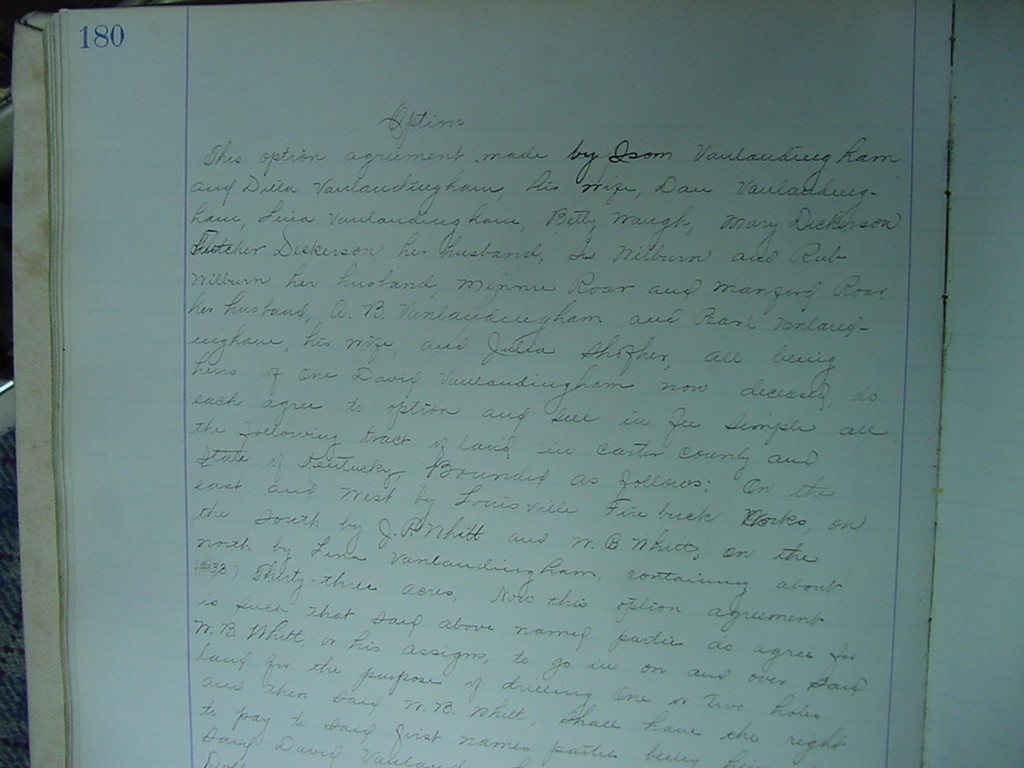 180
Option
This option agreement made by Isom Vanlandingham
and Dilla Vanlandingham, his wife, Dan Vanlanding-
ham, Lina Vanlandingham, Betty Waugh, Mary Dickerson
Dickerson her husband, Wilburn and Rub
Wilburn her husband, Minnie Roar and Manford Roar
her husband, A. B. Vanlandingham and Pearl Vanland-
ingham, his wife, and Julia all being
heirs of one David Vanlandingham now deceased, do
each agree to option and sell in Fee Simple all
the following tract of land in Carter County and
State of Kentucky, Bounded as follows: On the
east and West by Louisville Fire brick Works, on
the South by J.P. Whitt and W. B Whitt, on the
north by Lina Vanlandingham, containing about
(33) Thirty-three acres, Now this option agreement
is such that said above named parties do agree for
W. B. Whitt, or his assigns, to go in on and over said
land for the purpose of drilling one or two holes
and then said W. B. Whitt, shall have the right
to pay to said first names parties being
said David